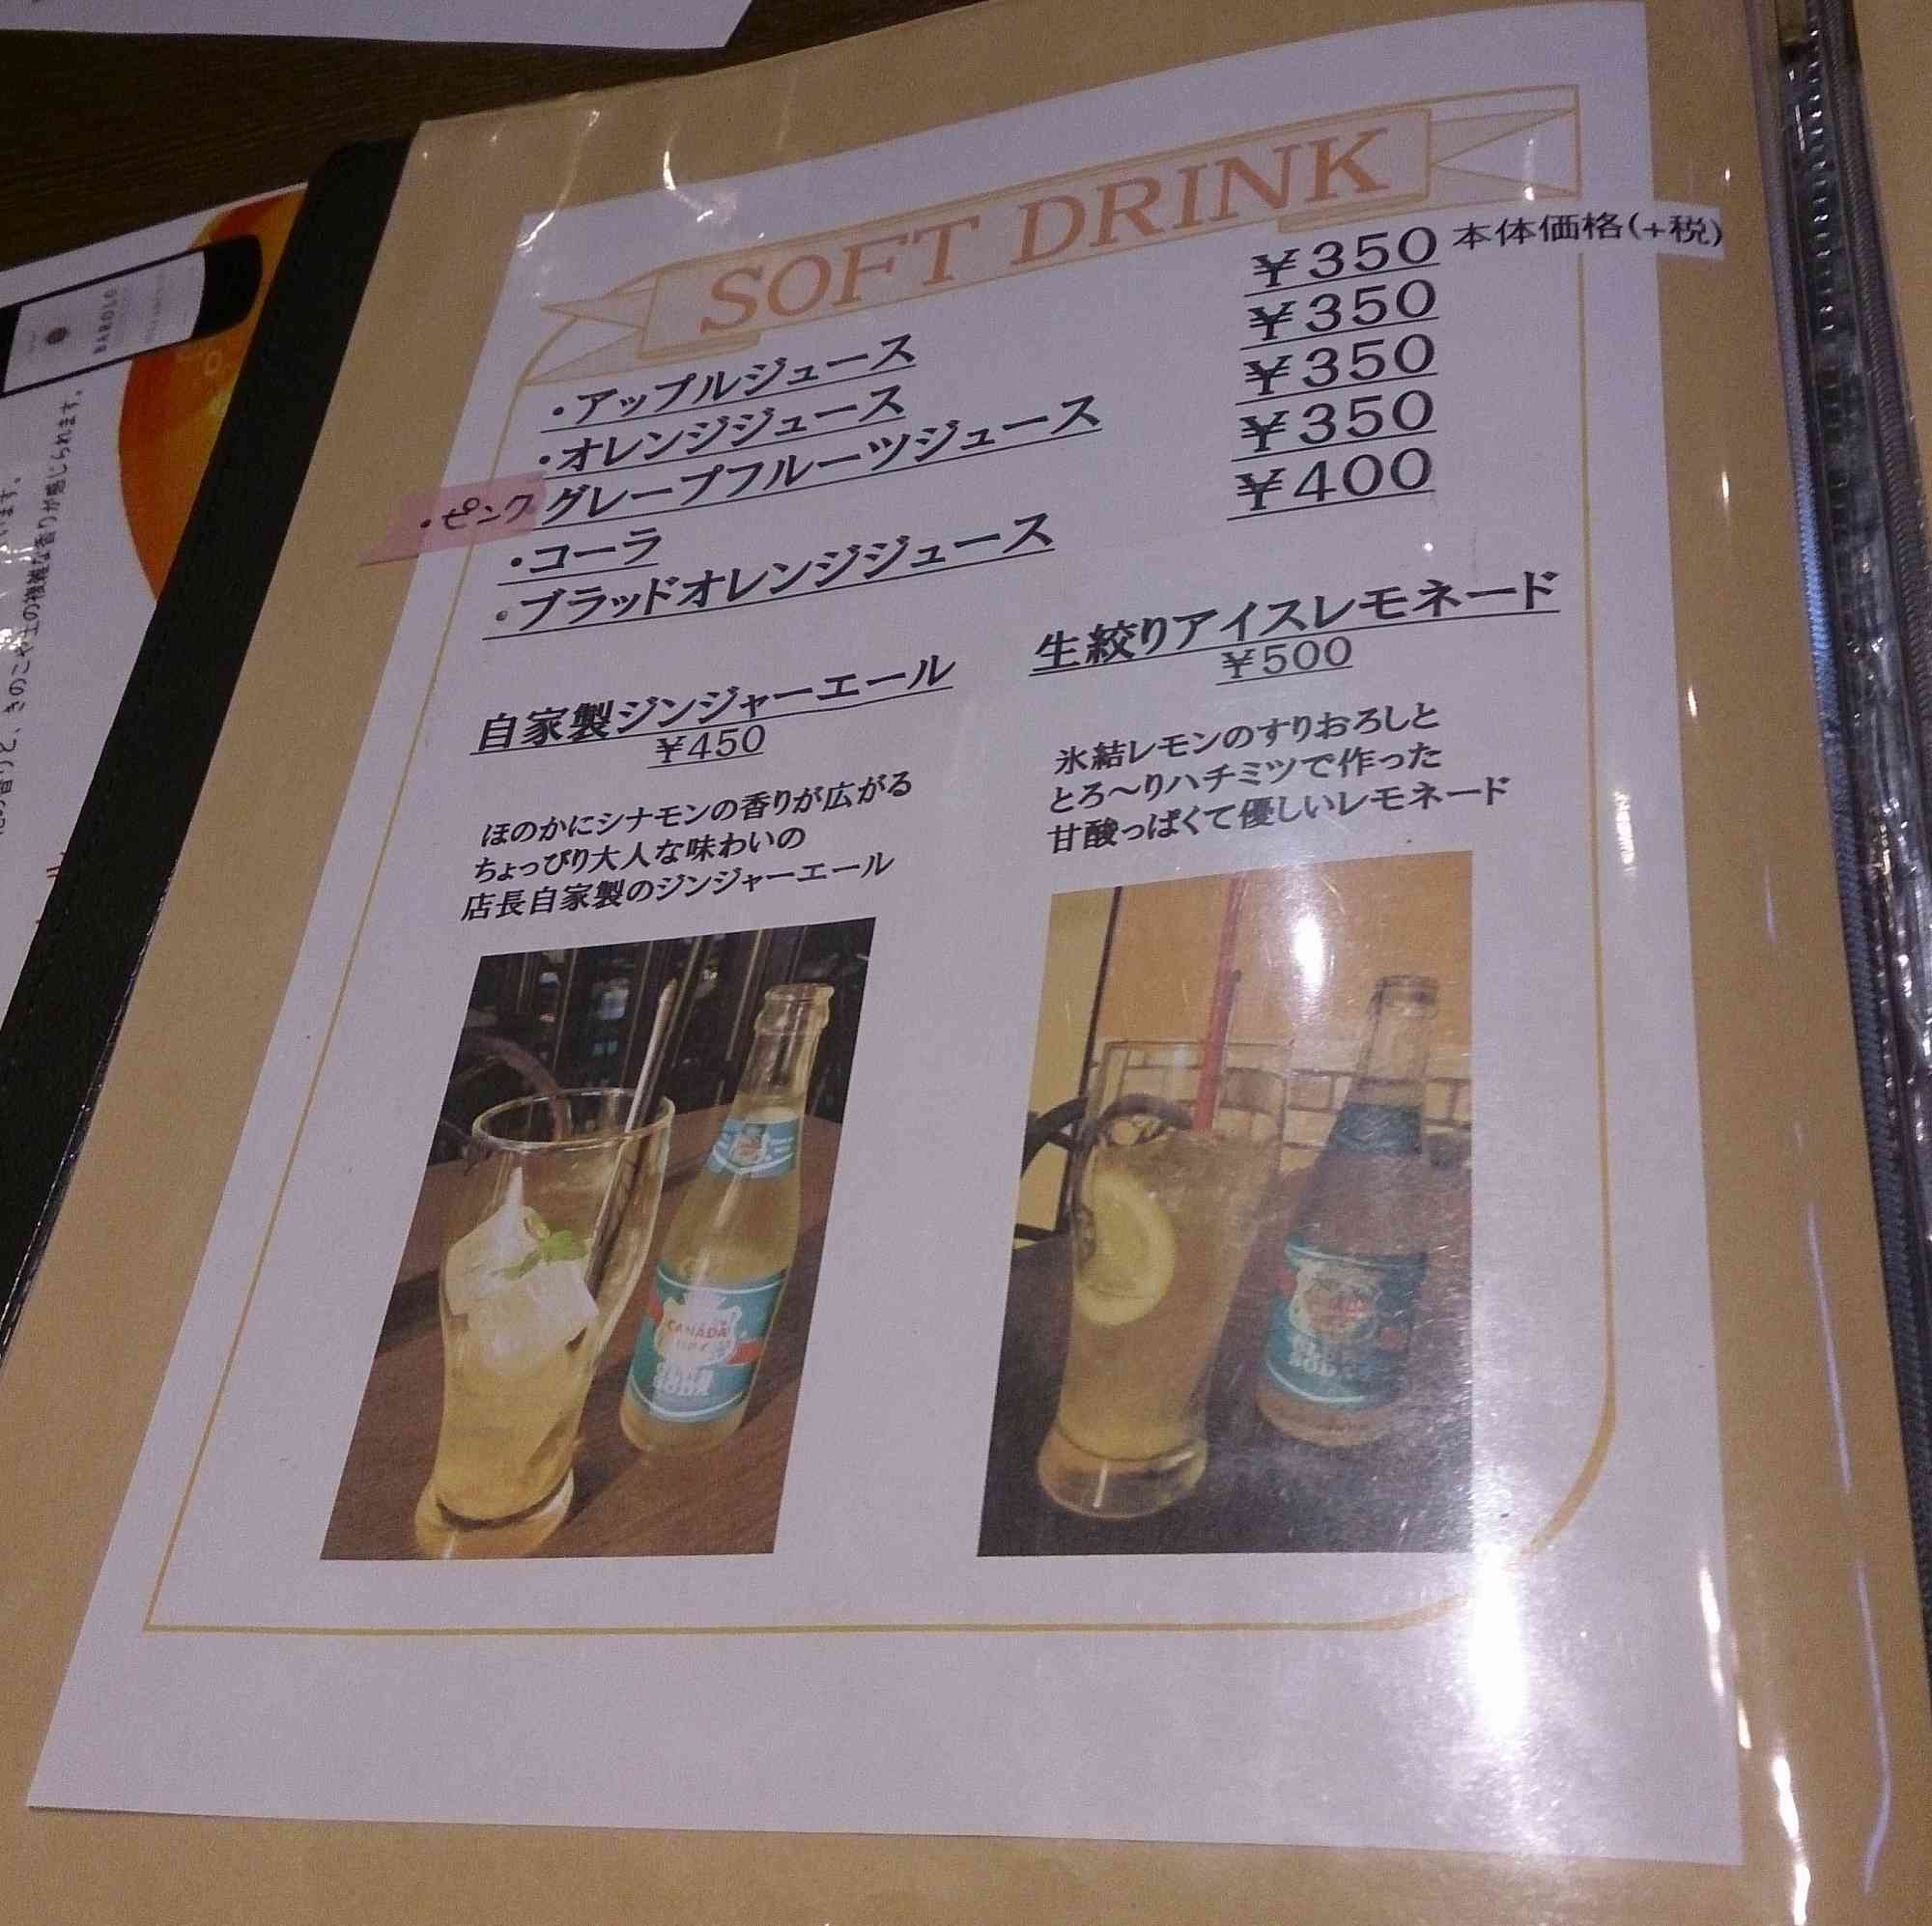 SOFT DRINK
本体価格(+税)
・アップルジュース ¥350
・オレンジジュース ¥350
・ピンクグレープフルーツジュース ¥350
・コーラ ¥350
・ブラッドオレンジジュース ¥400
自家製ジンジャーエール
¥450
ほのかにシナモンの香りが広がる
ちょっぴり大人な味わいの
店長自家製のジンジャーエール
生絞りアイスレモネード
¥500
氷結レモンのすりおろしと
とろ～りハチミツで作った
甘酸っぱくて優しいレモネード
CANADA
BAROLO
きのこや土の複雑な香りが感じられます。